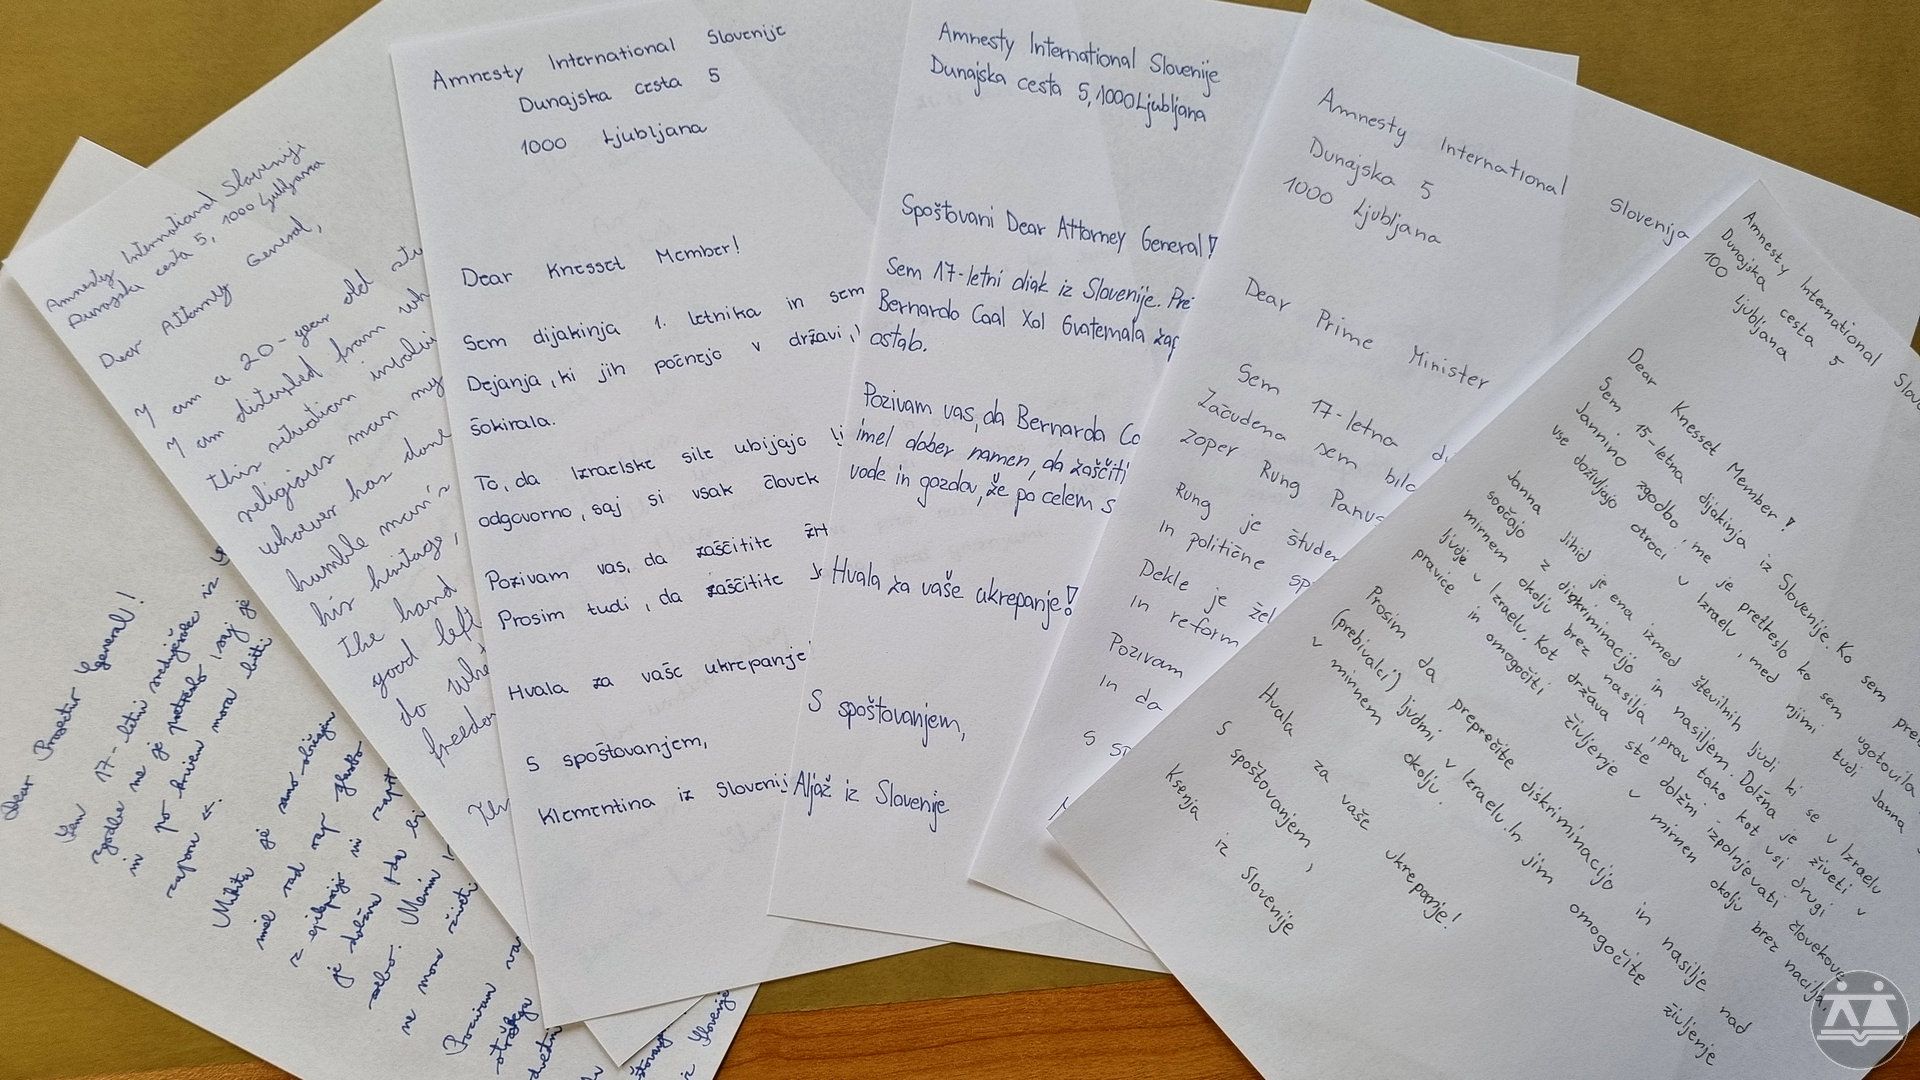 Dear Prosecutor General!
Sem 17-letni srednješolec iz
zgodba me je pretreslo, saj je
in po krivem mora biti
zaporu <.
Mikita je samo
imel rad rap glasbo
z in
je dolžna da bi
sebo.
ne more živeti
Pozivam vas
Amnesty International Sloveniji
Dunajska cesta 5, 1000 Ljubljana
Dear Attorney General,
I am a 20-year old stu
I am disturbed from wh
this situation involvi
religious man my
whoever has done
humble man's
his heritage,
the hand
good left
do whe
freedo
Amnesty International Slovenije
Dunajska cesta 5
1000 Ljubljana
Dear Knesset Member!
Sem dijakinja 1. letnika in sem
Dejanja, ki jih počnejo v državi,
šokirala.
To, da Izraelske sile ubijajo li
odgovorno, saj si vsak človek
Pozivam vas, da zaščitite žrt
Prosim tudi, da zaščitite
Hvala za vaše ukrepanje
S spoštovanjem,
Klementina iz Slovenij
Amnesty International Slovenije
Dunajska cesta 5, 1000 Ljubljana
Spoštovani Dear Attorney General!
Sem 17-letni dijak iz Slovenije. Pre
Bernardo Caal Xol Gvatemala zag
ostab.
Pozivam vas, da Bernarda Ca
imel dober namen, da zaščiti
vode in gozdov, že po celem s
Hvala za vaše ukrepanje!
S spoštovanjem,
Aljaž iz Slovenije
Amnesty International Slovenija
Dunajska 5
1000 Ljubljana
Dear Prime Minister
Sem 17-letna di
Začudena sem bila
zoper Rung Panus
Rung je študen
in politične sp
Dekle je žel
in reform
Pozivam
in da
S sp
Amnesty International Slove
Dunajska cesta 5
100 Ljubljana
Dear Knesset Member!
Sem 15-letna dijakinja iz Slovenije. Ko sem pre
Jannino zgodbo, me je pretreslo ko sem ugotovila
vse doživljajo otroci v Izraelu, med njimi tudi Janna
Janna Jihid je ena izmed številnih ljudi ki se v Izraelu
soočajo z diskriminacijo in nasiljem. Dolžna je živeti v
mirnem okolju brez nasilja, prav tako kot vsi drugi
ljudje v Izraelu. Kot država ste dolžni izpolnjevati človekove
pravice in omogočiti življenje v mirnem okolju brez nacilja.
Prosim da preprečite diskriminacijo in nasilje nad
(prebivalci) ljudmi v Izraelu. In jim omogočite življenje
v mirnem okolju.
Hvala za vaše ukrepanje!
S spoštovanjem,
Ksenja iz Slovenije